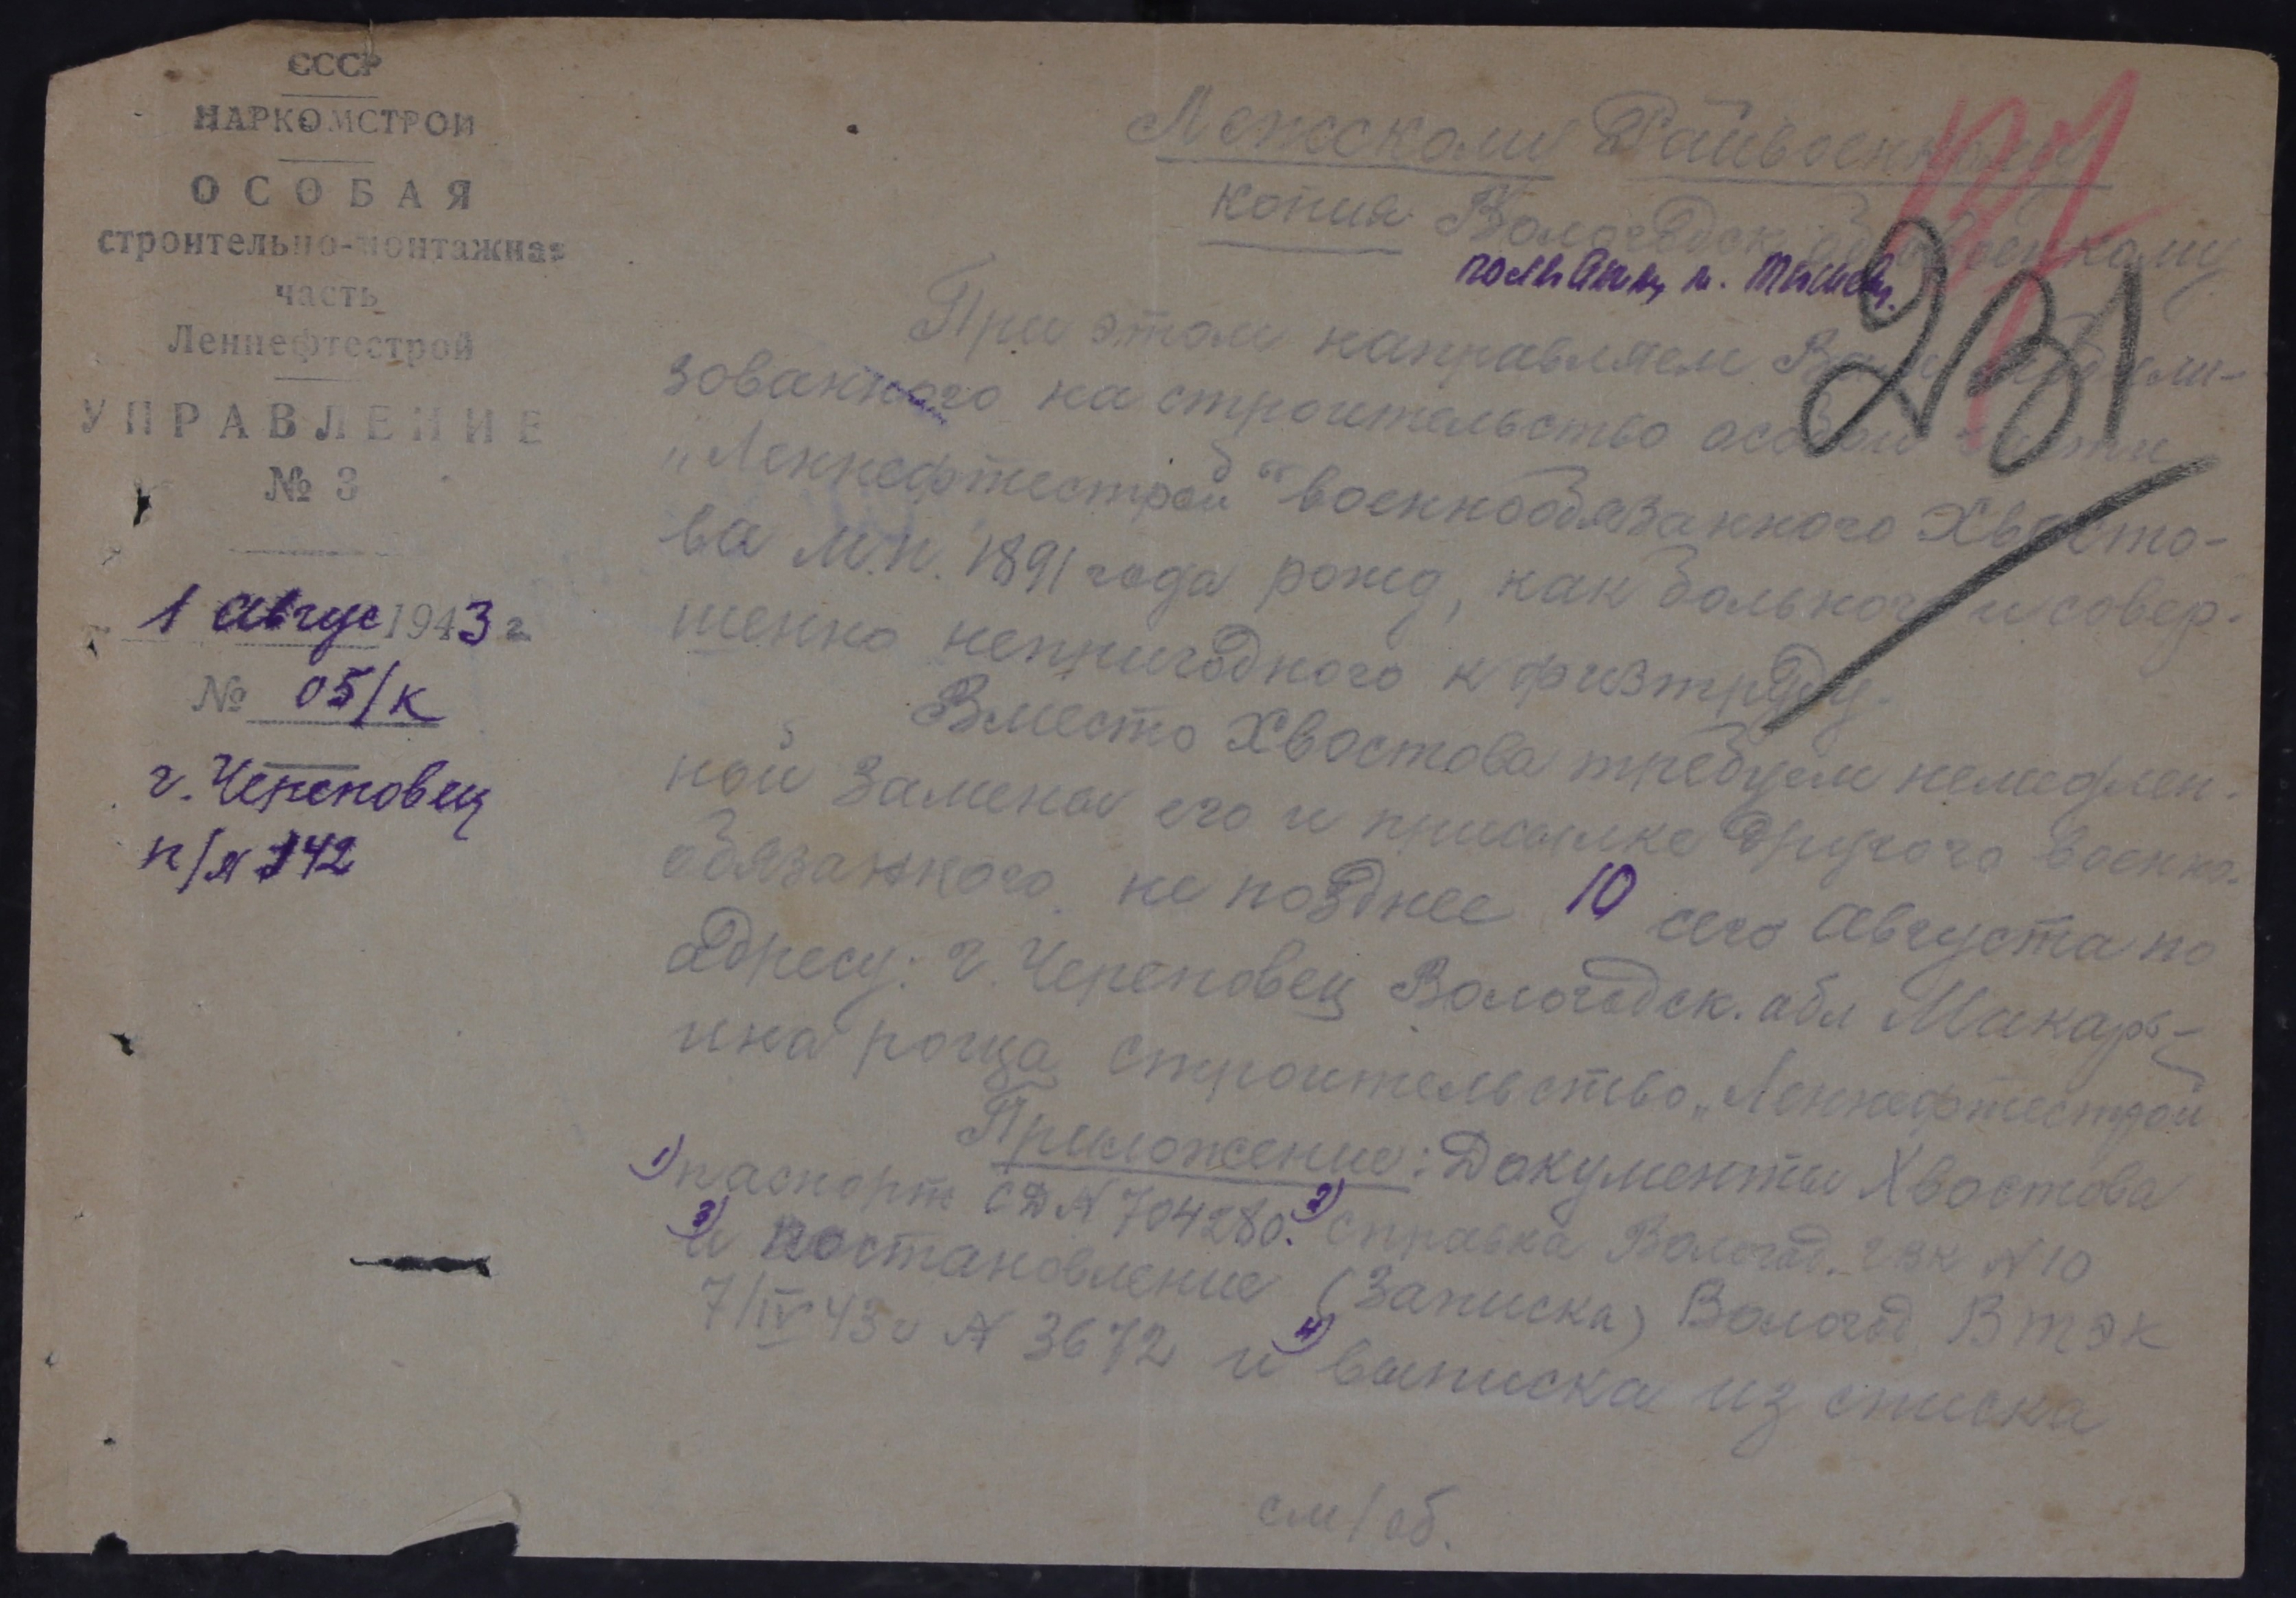 СССР
НАРКОМСТРОЙ
ОСОБАЯ
строительно-монтажная
часть
Леннефтестрой
УПРАВЛЕНИЕ
№ 3
1 Авгус 1943 г.
№ 05/к
г. Череповец
п/я 142
Лежскому Райвоенкому
копия Вологодск. Облвоенкому
231
При этом направляем Вам мобили-
зованного на строительство особой части
„Леннефтестрой" военнообязанного Хвосто-
ва М.П. 1891 года рожд, как больного и совер-
шенно непригодного к физтруду.
Вместо Хвостова требуем немедлен-
ной замены его и присылке другого военно-
обязанного не позднее 10 сего Августа по
адресу: г. Череповец Вологодск. обл Макарь-
ина роща строительство „Леннефтестрой
Приложение: Документы Хвостова
1) паспорт СД № 704280. 2) справка Волог. ГВК № 10
3) и постановление (записка) Вологод ВТЭК
7/IV 43 г № 3672 и 4) выписка из списка
см/об.